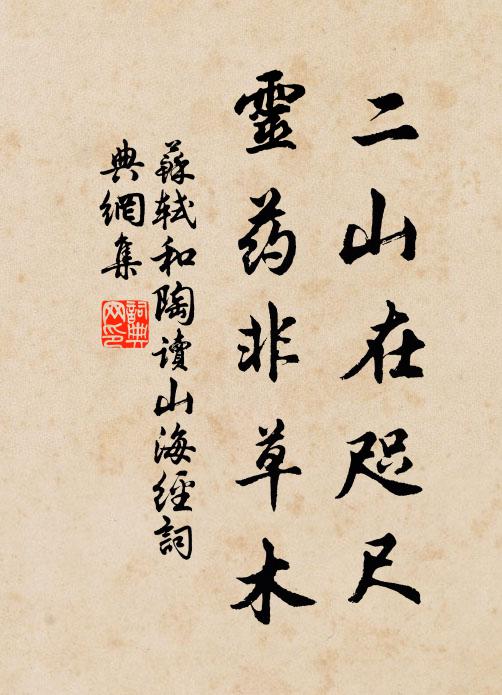 二山在咫尺
靈药非草木
蘇轼和陶讀山海經詞
典網集
詞典网印